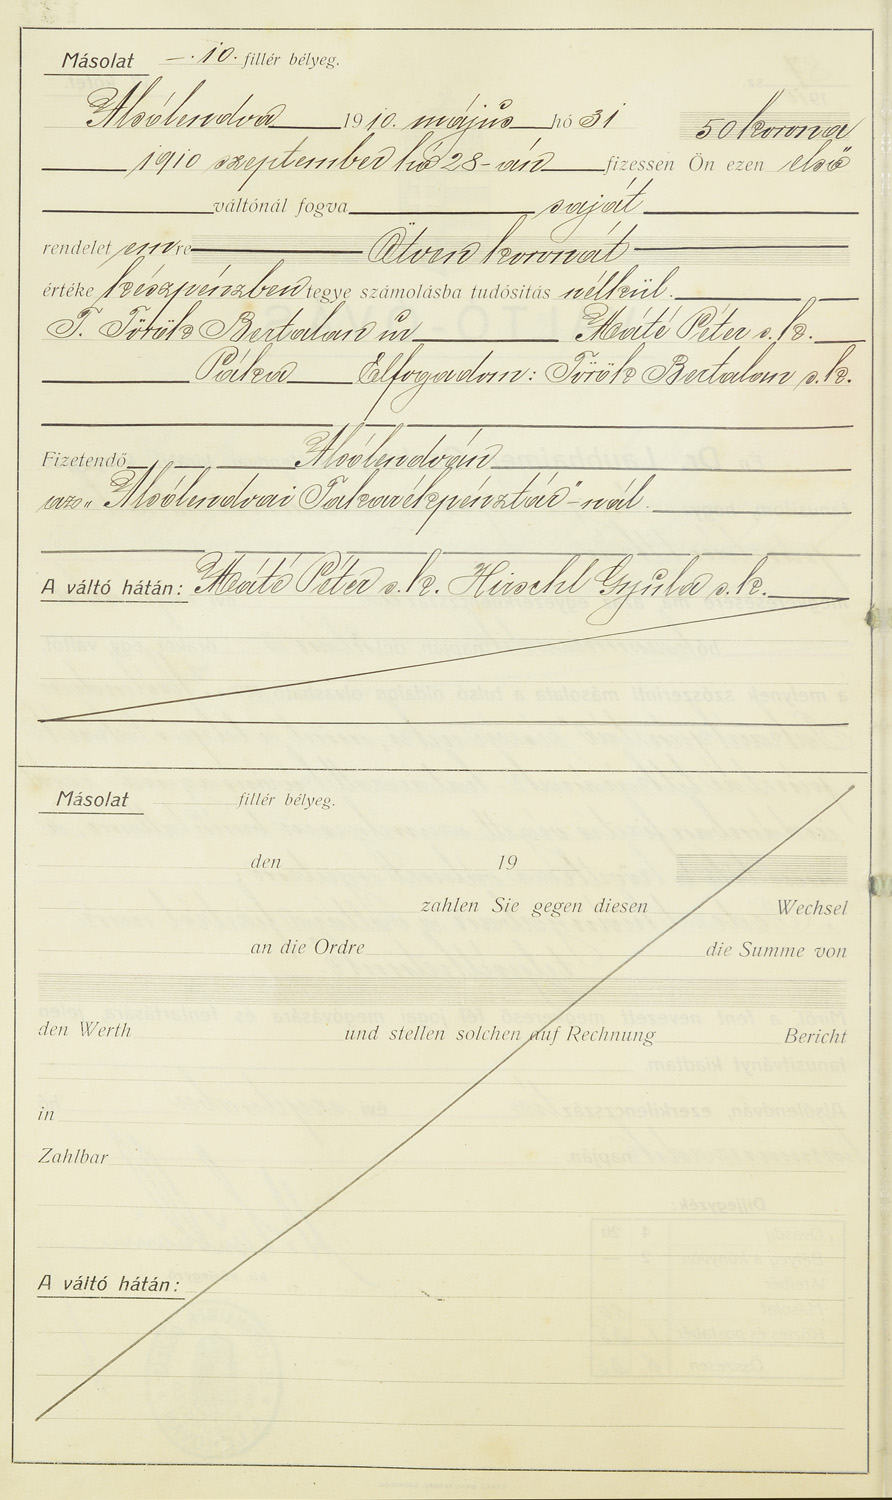 Másolat —.10. fillér bélyeg.
Alsólendva 1910. május hó 31 50 korona
1910 szeptember hó 28-án fizessen Ön ezen első
váltónál fogva saját
rendelet emre Ötven koronát
értéke készpénzben tegye számolásba tudósítás nélkül.
T. Török Bertalan úr Máté Péter s.k.
Páka Elfogadom: Török Bertalan s.k.
Fizetendő Alsólendván
az „Alsólendvai Takarékpénztár"-nál.
A váltó hátán: Máté Péter s.k. Hirschl Gyula s.k.
Másolat fillér bélyeg.
den 19
zahlen Sie gegen diesen Wechsel
an die Ordre die Summe von
den Werth und stellen solchen auf Rechnung Bericht
in
Zahlbar
A váltó hátán: